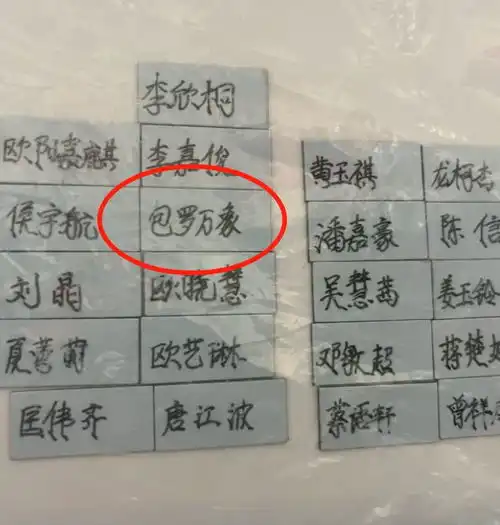 李欣桐
欧阳嘉麒 李嘉俊
侯宇航 包罗万象
刘晶 欧晓慧
夏蕾菊 欧艺琳
匡伟齐 唐江波
黄玉祺 龙柯杏
潘嘉豪 陈信
吴慧茜 姜玉铃
邓敏超 蒋楚
蔡雨轩 曾祥